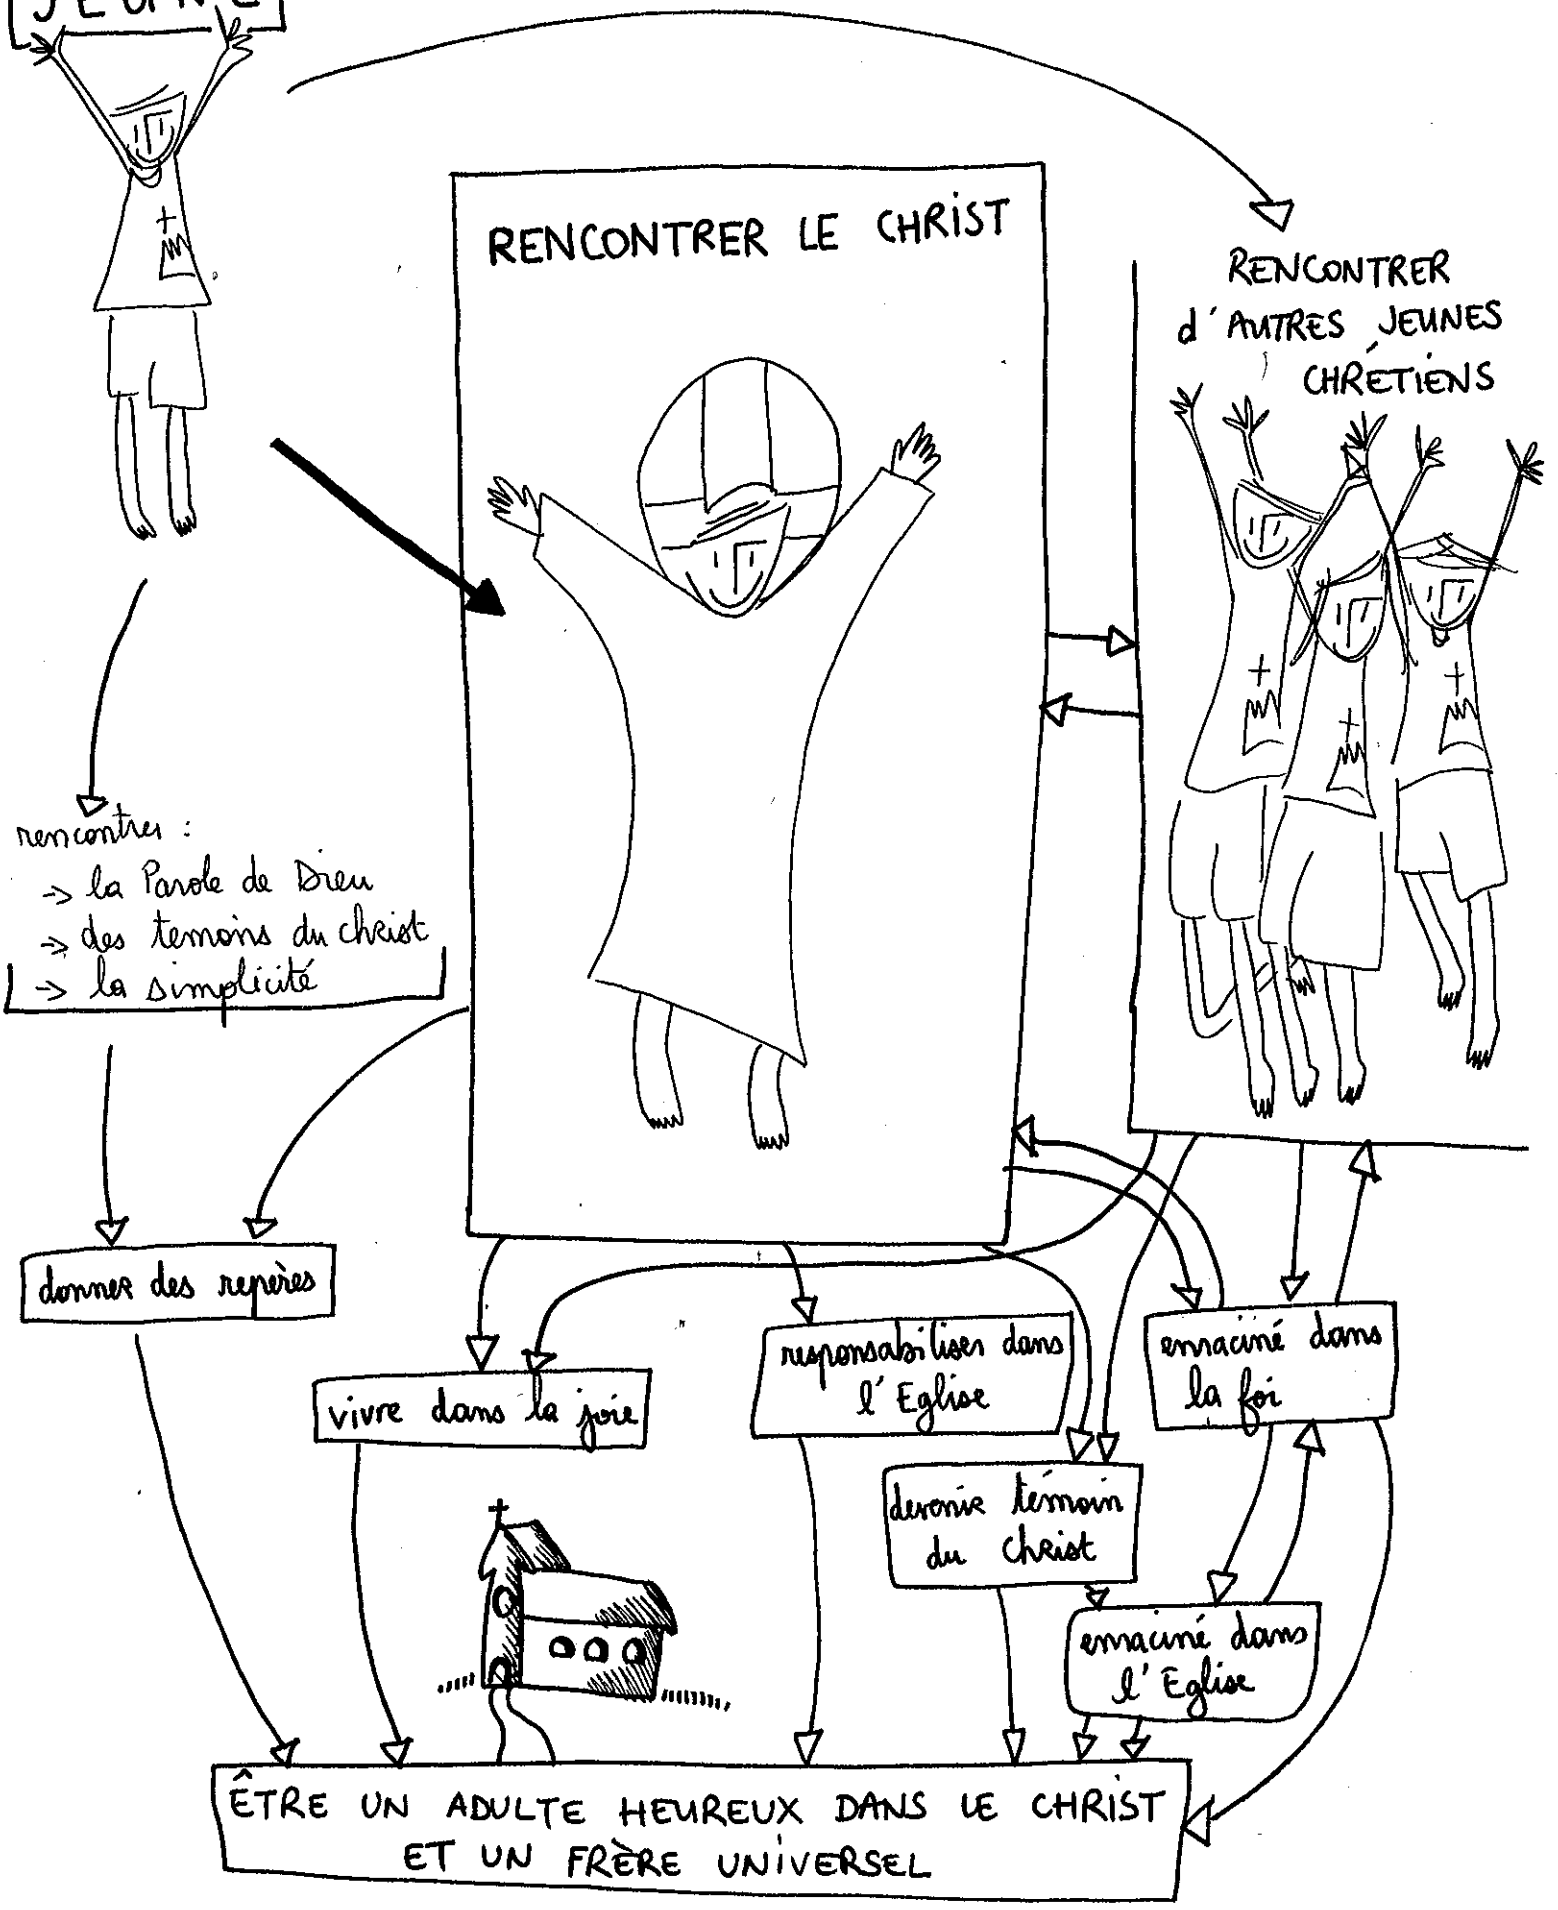 JEUNE
RENCONTRER LE CHRIST
RENCONTRER
d'AUTRES JEUNES
CHRÉTIENS
rencontrer :
→ la Parole de Dieu
→ des temoins du christ
→ la simplicité
donner des repères
vivre dans la joie
responsabiliser dans
l'Eglise
enraciné dans
la foi
devenir témoin
du Christ
enraciné dans
l'Eglise
ÊTRE UN ADULTE HEUREUX DANS LE CHRIST
ET UN FRÈRE UNIVERSEL